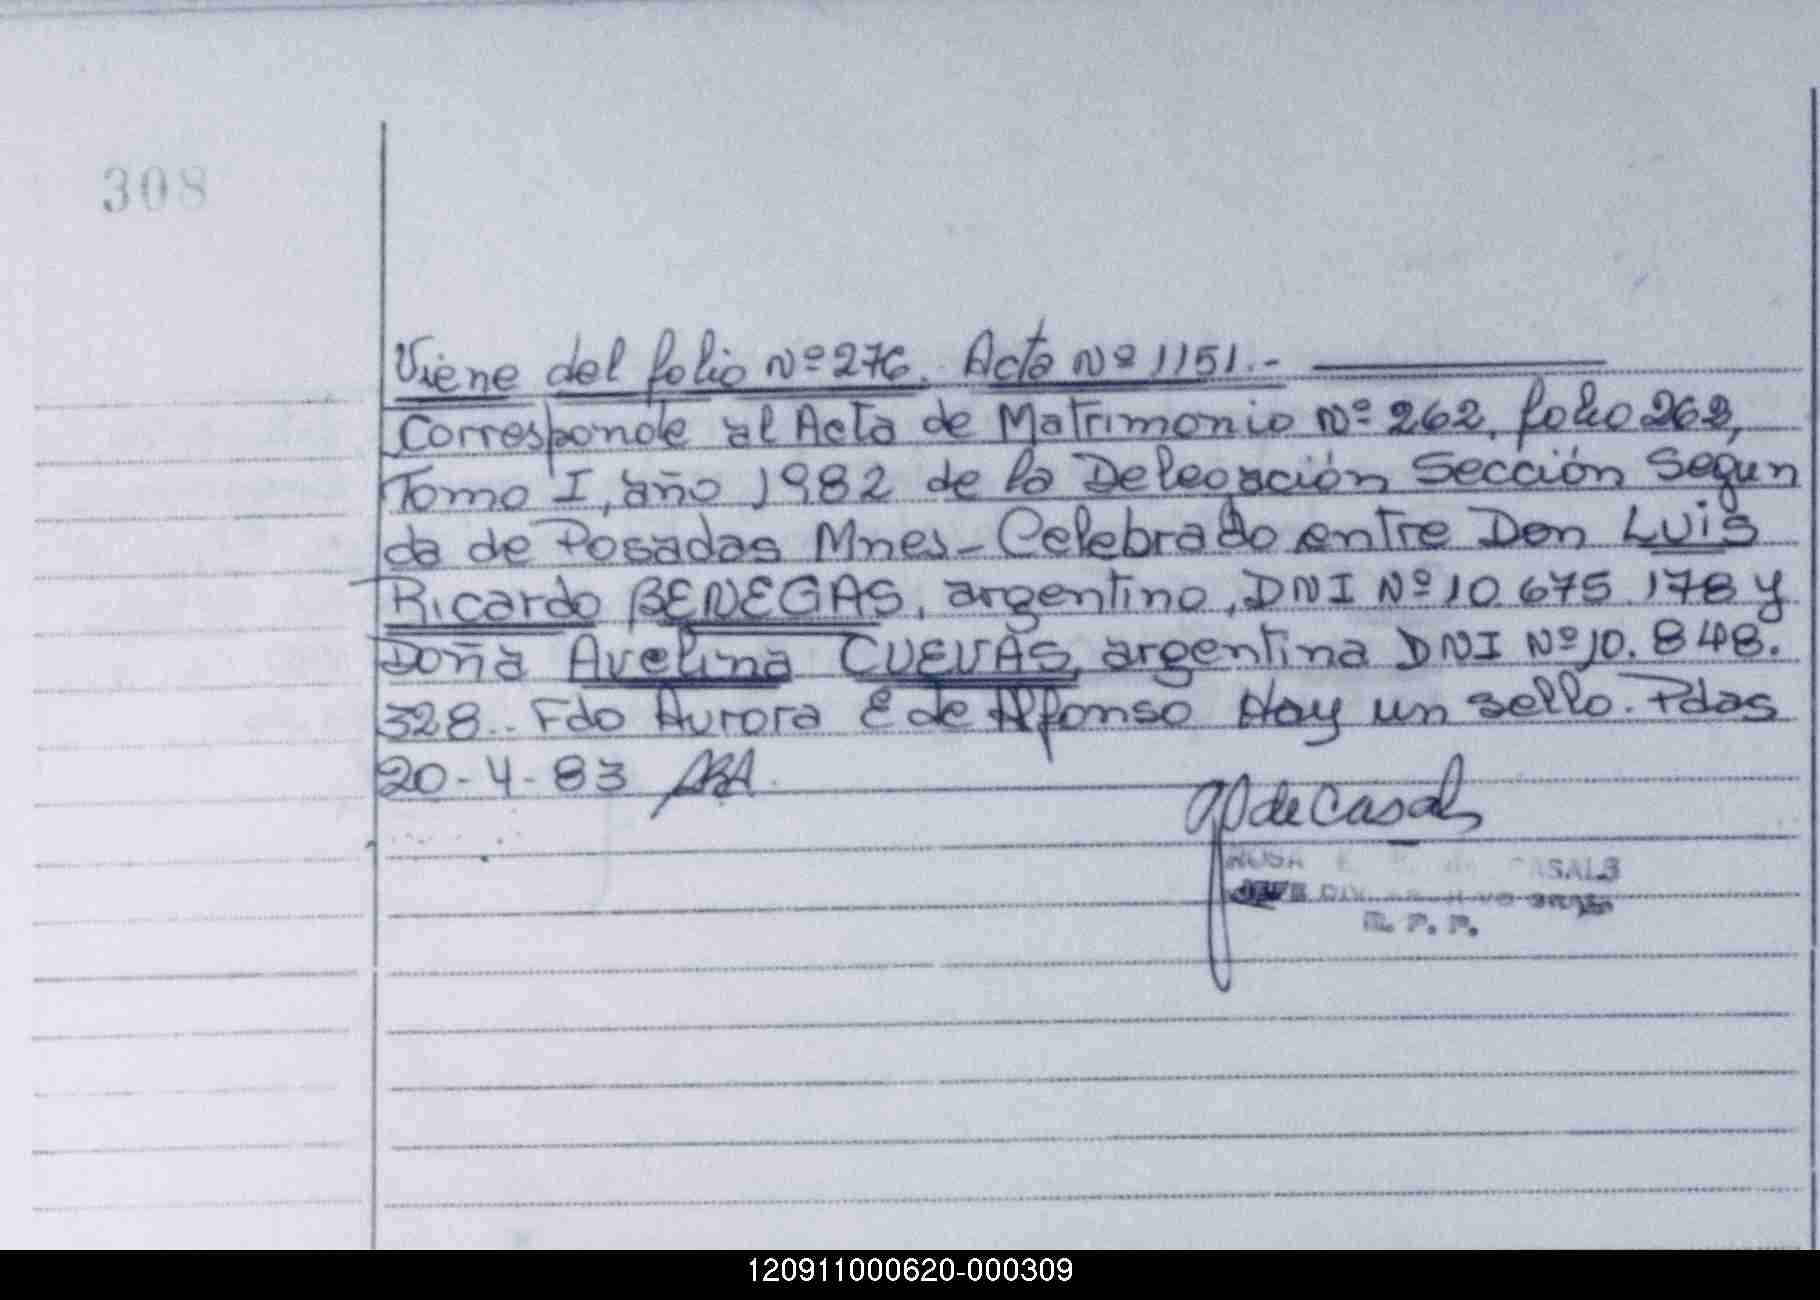 308
Viene del folio Nº 276. Acta Nº 1151.-
Corresponde al Acta de Matrimonio Nº 262, folio 262,
Tomo I, año 1982 de la Delegación Sección Segun
da de Posadas Mnes- Celebrado entre Don Luis
Ricardo BENEGAS, argentino, DNI Nº 10.675.178 y
Doña Avelina CUEVAS, argentina DNI Nº 10.848.
328.- Fdo Aurora E de Alfonso Hay un sello. Pdas
20-4-83
de Casals
CASALS
JEFE DIV.
R. P. P.
120911000620-000309